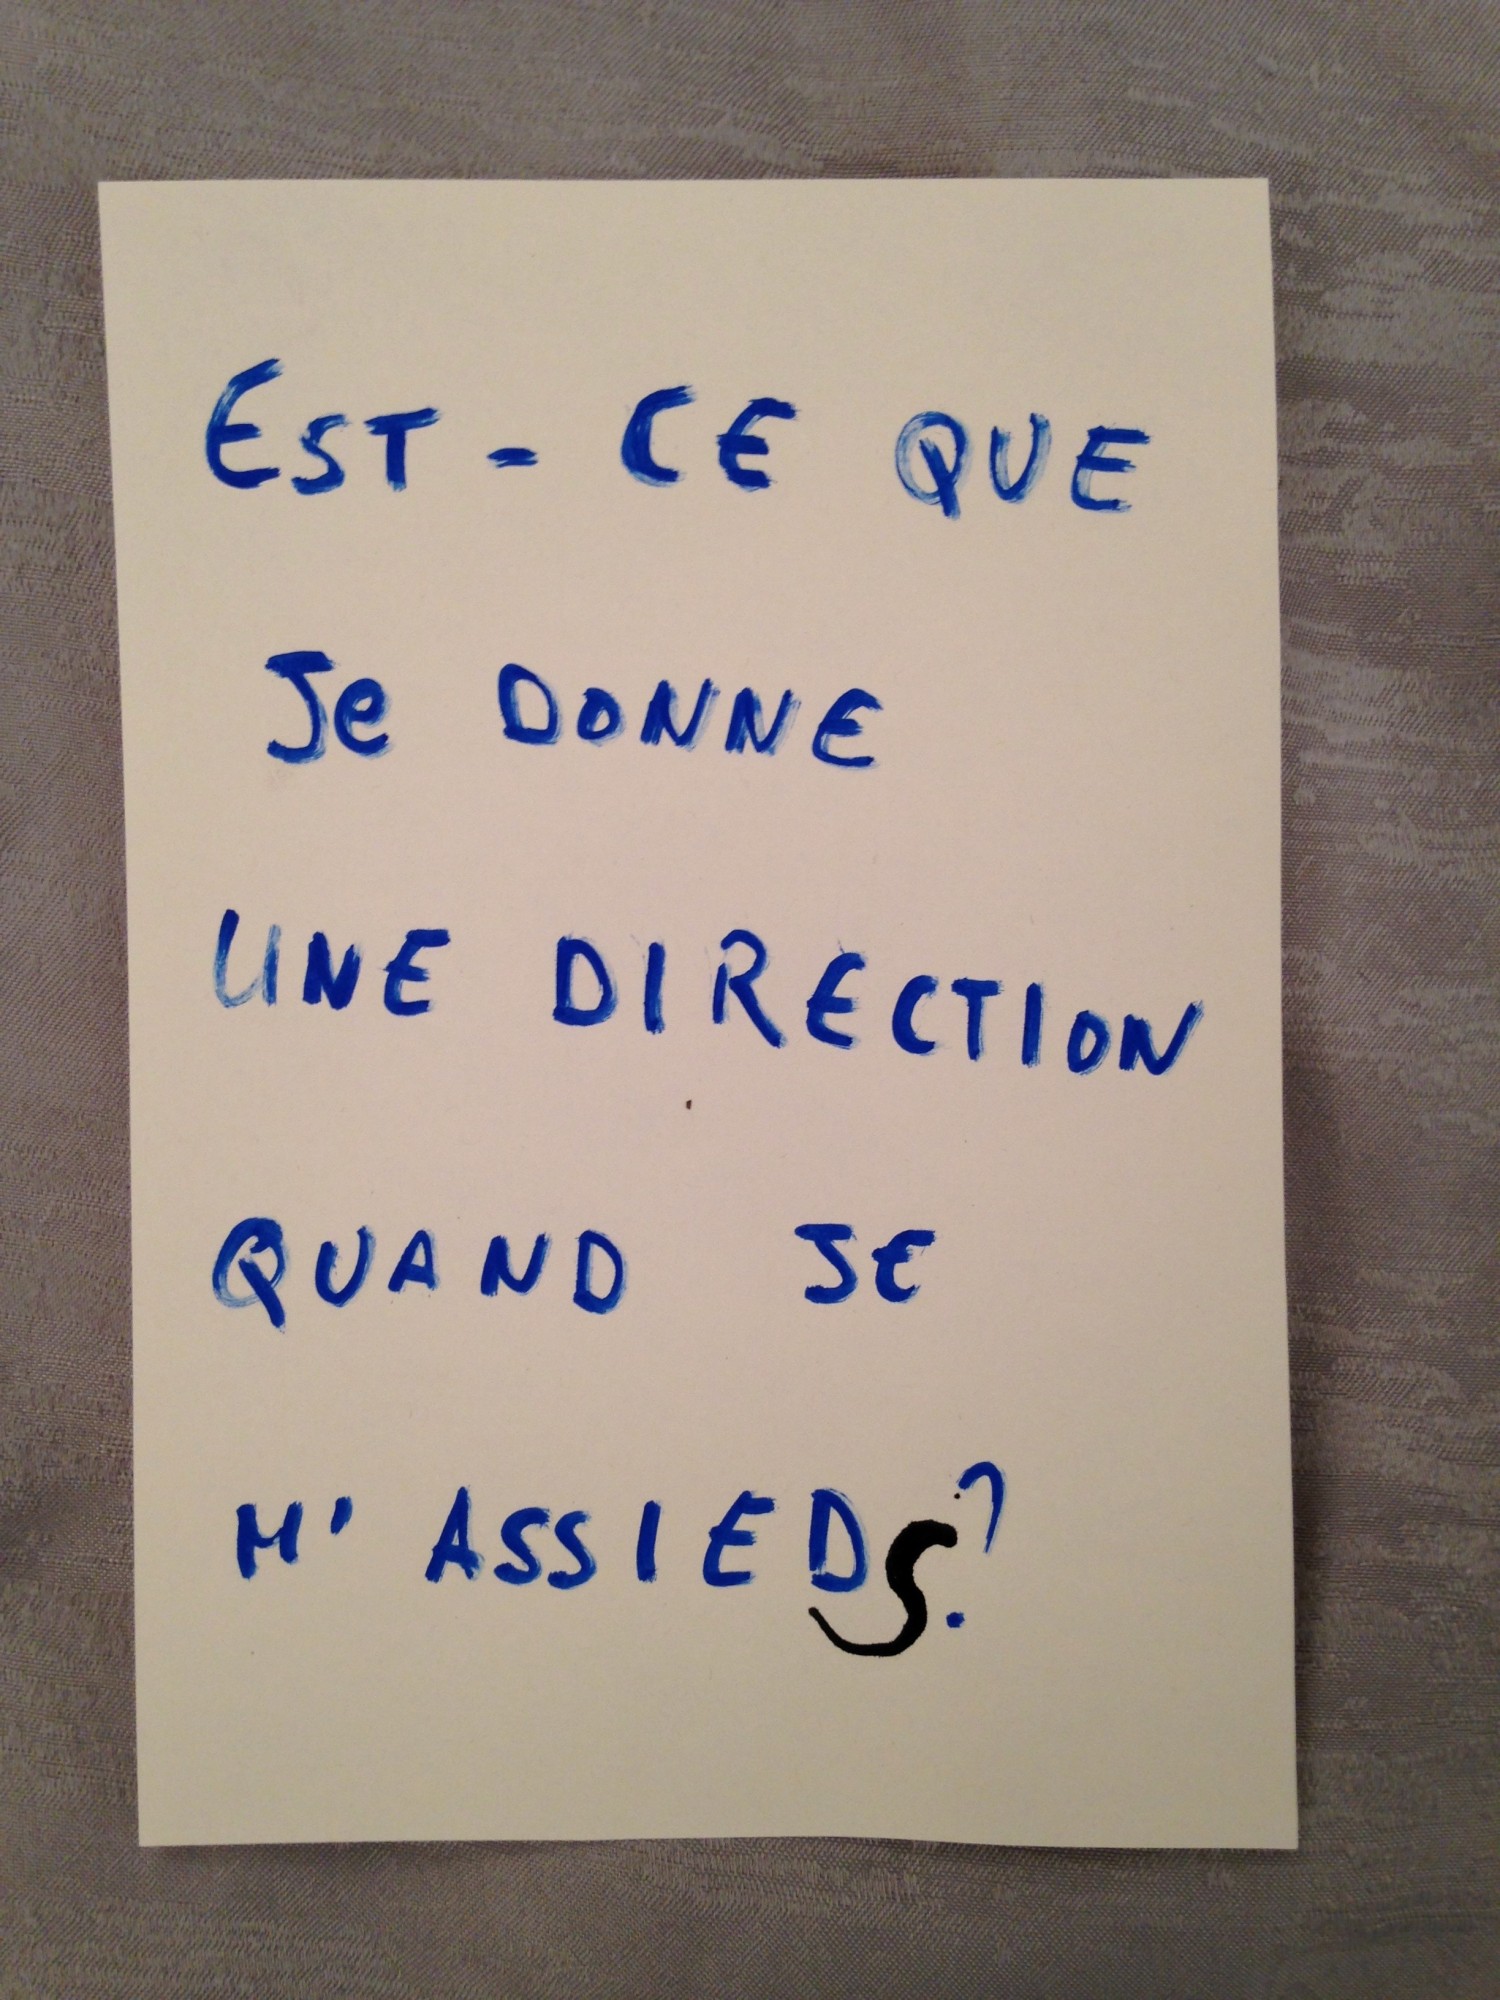 EST-CE QUE
Je DONNE
UNE DIRECTION
QUAND JE
M'ASSIEDS?